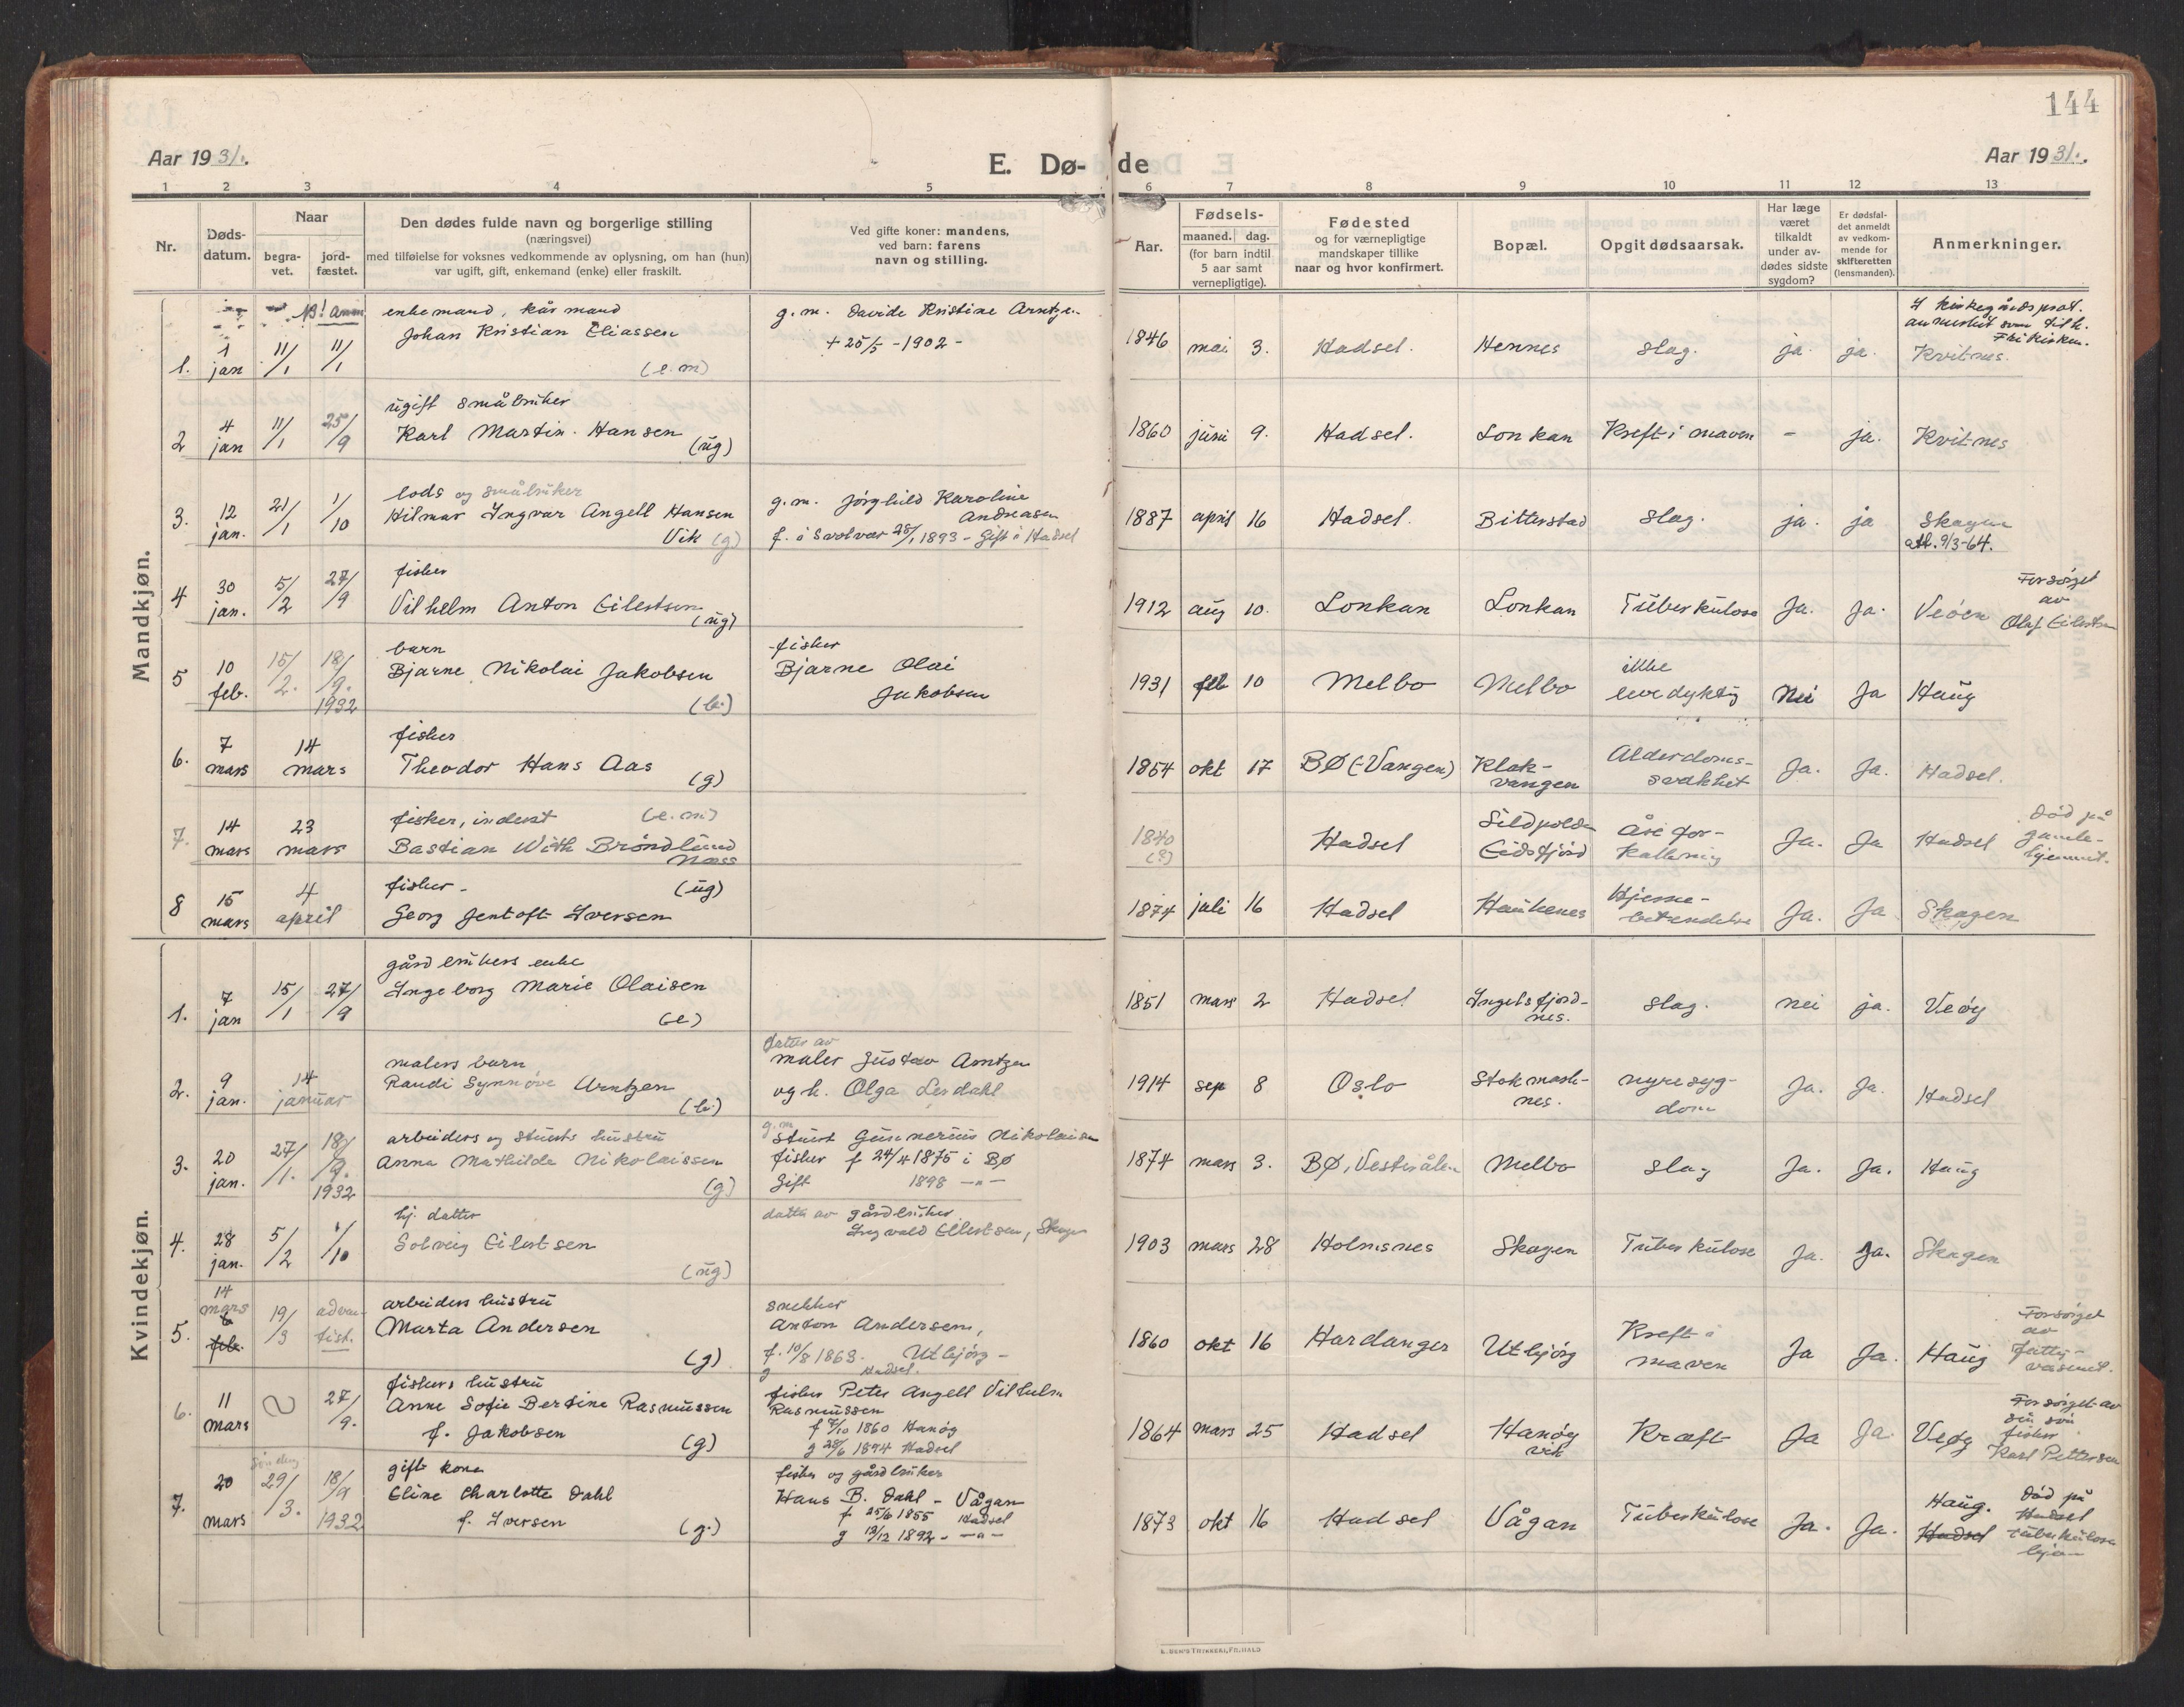 144
Aar 1931.
E. Dø-de
Aar 1931.
1 2 3 4 5 6 7 8 9 10 11 12 13
Nr.
Døds-
datum.
Naar
begra-
vet.
jord-
fæstet.
Den dødes fulde navn og borgerlige stilling
(næringsvei)
med tilføielse for voksnes vedkommende av oplysning, om han (hun)
var ugift, gift, enkemand (enke) eller fraskilt.
Ved gifte koner: mandens,
ved barn: farens
navn og stilling.
Aar.
Fødsels-
maaned. dag.
(for barn indtil
5 aar samt
vernepligtige).
Fødested
og for værnepligtige
mandskaper tillike
naar og hvor konfirmert.
Bopæl.
Opgit dødsaarsak.
Har læge
været
tilkaldt
under av-
dødes sidste
sygdom?
Er dødsfal-
det anmeldt
av vedkom-
mende for
skifteretten
(lensmanden).
Anmerkninger.
Mandkjøn.
1. 1 jan 11/1 11/1
N.B! Anm
enkemand, kårmand
Johan Kristian Eliassen
(e.m)
g.m. Davide Kristine Arntzen
+ 25/5 - 1902 -
1846 mai 3. Hadsel. Hennes slag. ja. ja.
I kirkegårdsprot.
anmerket som tilh.
Frikirken.
Kvitnes.
2 4 jan 11/1 25/9
ugift småbruker
Karl Martin Hansen
(ug)
1860 juni 9. Hadsel. Lonkan Kreft i maven - ja. Kvitnes
3. 12 jan. 21/1 1/10
lods og småbruker
Hilmar Ingvar Angell Hansen
Vik (g)
g.m. Jørghild Karoline
Andreasen
f. i Svolvær 28/1 1893 - Gift i Hadsel
1887 april 16 Hadsel. Bitterstad slag. ja. ja Skagen
att. 9/3-64.
4 30 jan. 5/2 27/9
fisker
Vilhelm Anton Eilertsen
(ug)
1912 aug 10. Lonkan Lonkan Tuberkulose Ja. Ja. Veøen
Forsørget
av
Olaf Eilertsen
5 10 feb. 15/2. 18/9. 1932
barn
Bjarne Nikolai Jakobsen
(b.)
fisker
Bjarne Olai
Jakobsen
1931 feb 10 Melbo Melbo ikke
levedyktig Nei Ja Haug
6. 7 mars 14 mars
fisker
Theodor Hans Aas
(g)
1854 okt 17 BØ (-Vangen) Klak-
vangen Alderdoms-
svakhet Ja. Ja. Hadsel.
7. 14 mars 23 mars
fisker, inderst (e.m)
Bastian With Brøndlund
Næss
1840
(?) Hadsel Sildpolden
Eidsfjord Åre for-
kalkning Ja. Ja Hadsel
død på
gamle-
hjemmet.
8 15 mars 4 april
fisker - (ug)
Georg Jentoft Iversen
1874 juli 16 Hadsel Haukenes Hjerne-
betendelse Ja. Ja Skagen
Kvindekjøn.
1. 7 jan 15/1 27/9
gårdbrukers enke
Ingeborg Marie Olaisen
(e)
1851 mars 2 Hadsel Ingelsfjord-
nes. slag. nei ja. Veøy
2. 9 jan. 14 januar
malers barn
Randi Synnøve Arntzen
(b.)
datter av
maler Gustav Arntzen
og h. Olga Lerdahl
1914 sep 8 Oslo Stokmark-
nes. nyresyg-
dom Ja. Ja. Hadsel
3. 20 jan. 27/1. 18/9. 1932
arbeiders og stuerts hustru
Anna Mathilda Nikolaissen
(g)
g.m
stuert Gunnerius Nikolaisen
fisker f 24/4 1875 i BØ
Gift 1898 -"-
1874 mars 3. BØ, Vesterålen Melbo slag Ja. Ja. Haug
4. 28 jan. 5/2 1/10
hj. datter
Solveig Eilertsen
(ug)
datter av gårdbruker
Ingvald Eilertsen, Skagen
1903 mars 28 Holmsnes Skagen Tuberkulose Ja. Ja. Skagen
5. 14 mars feb. 19/3 adven-
tist.
arbeiders hustru
Marta Andersen
(g)
snekker
Anton Andersen,
f. 10/8 1863. Utbjørg -
g Hadsel.
1860 okt 16 Hardanger Utbjørg Kreft i
maven Ja Ja. Haug
Forsørget
av
fattig-
vesenet.
6. 11 mars 27/9.
fiskers hustru
Anne Sofie Bertine Rasmussen
f. Jakobsen
(g)
fisker Peter Angell Vilhelm
Rasmussen
f 7/10 1860 Hanøy
g 28/6 1894 Hadsel
1864 mars 25 Hadsel Hanøy
vik Kræft Ja Ja. Veøy
Forsørget av
sin søn
fisker
Karl Pettersen
7. 20 mars søndag 29/3. 18/9 1932
gift kone
Eline Charlotte Dahl
f. Iversen
(g.)
fisker og gårdbruker
Hans B. Dahl - Vågan
f 25/6 1855 Hadsel
g 12/12 1892 - -"-
1873 okt 16 Hadsel Vågan Tuberkulose Ja. Ja. Haug.
Hadsel
Død på
Hadsel
tuberkulose
hjem
E. SEM'S TRYKKERI, FR.HALD